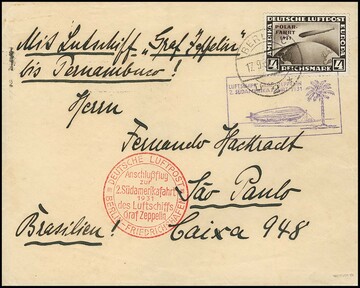 Mit Lutschiff „Graf Zeppelin"
bis Pernambuco!
DEUTSCHE LUFTPOST
POLAR-
FAHRT
1931
REICHSMARK
BERLIN
17.9.
LUFTSCHIFF GRAF ZEPPELIN
2. SÜDAMERIKAFAHRT 1931
Herrn
Fernando Hackradt
São Paulo
Brasilien! Caixa 948
DEUTSCHE LUFTPOST
Anschlußflug
zur
2.Südamerikafahrt
1931
des Luftschiffs
Graf Zeppelin
BERLIN-FRIEDRICHSHAFEN